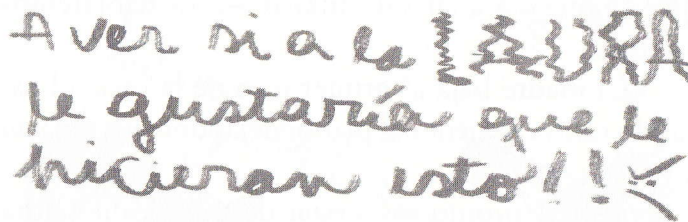 A ver si a la LAURA
le gustaría que le
hicieran esto!!